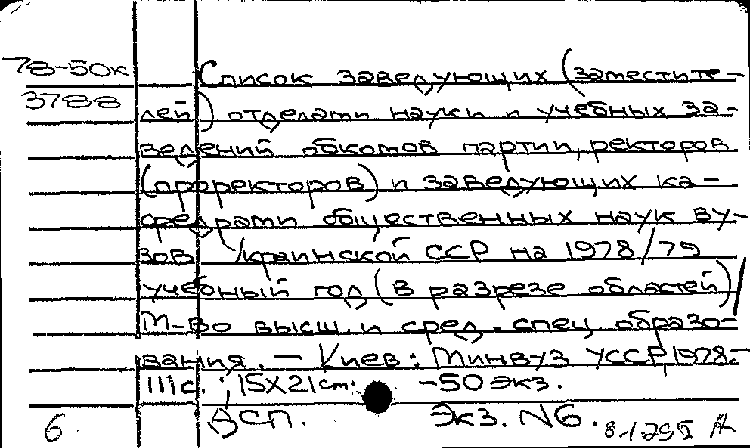 78-50к Список заведующих (заместите-
3788 лей) отделами науки и учебных за-
ведений обкомов партии, ректоров
(проректоров) и заведующих ка-
федрами общественных наук ву-
зов Украинской ССР на 1978/79
учебный год (в разрезе областей)/
М-во высш. и сред. спец. образо-
вания. — Киев: Минвуз УССР, 1978.-
111 с. ; 15X21 cm. -50 экз.
6. ДСП. Экз. N6.